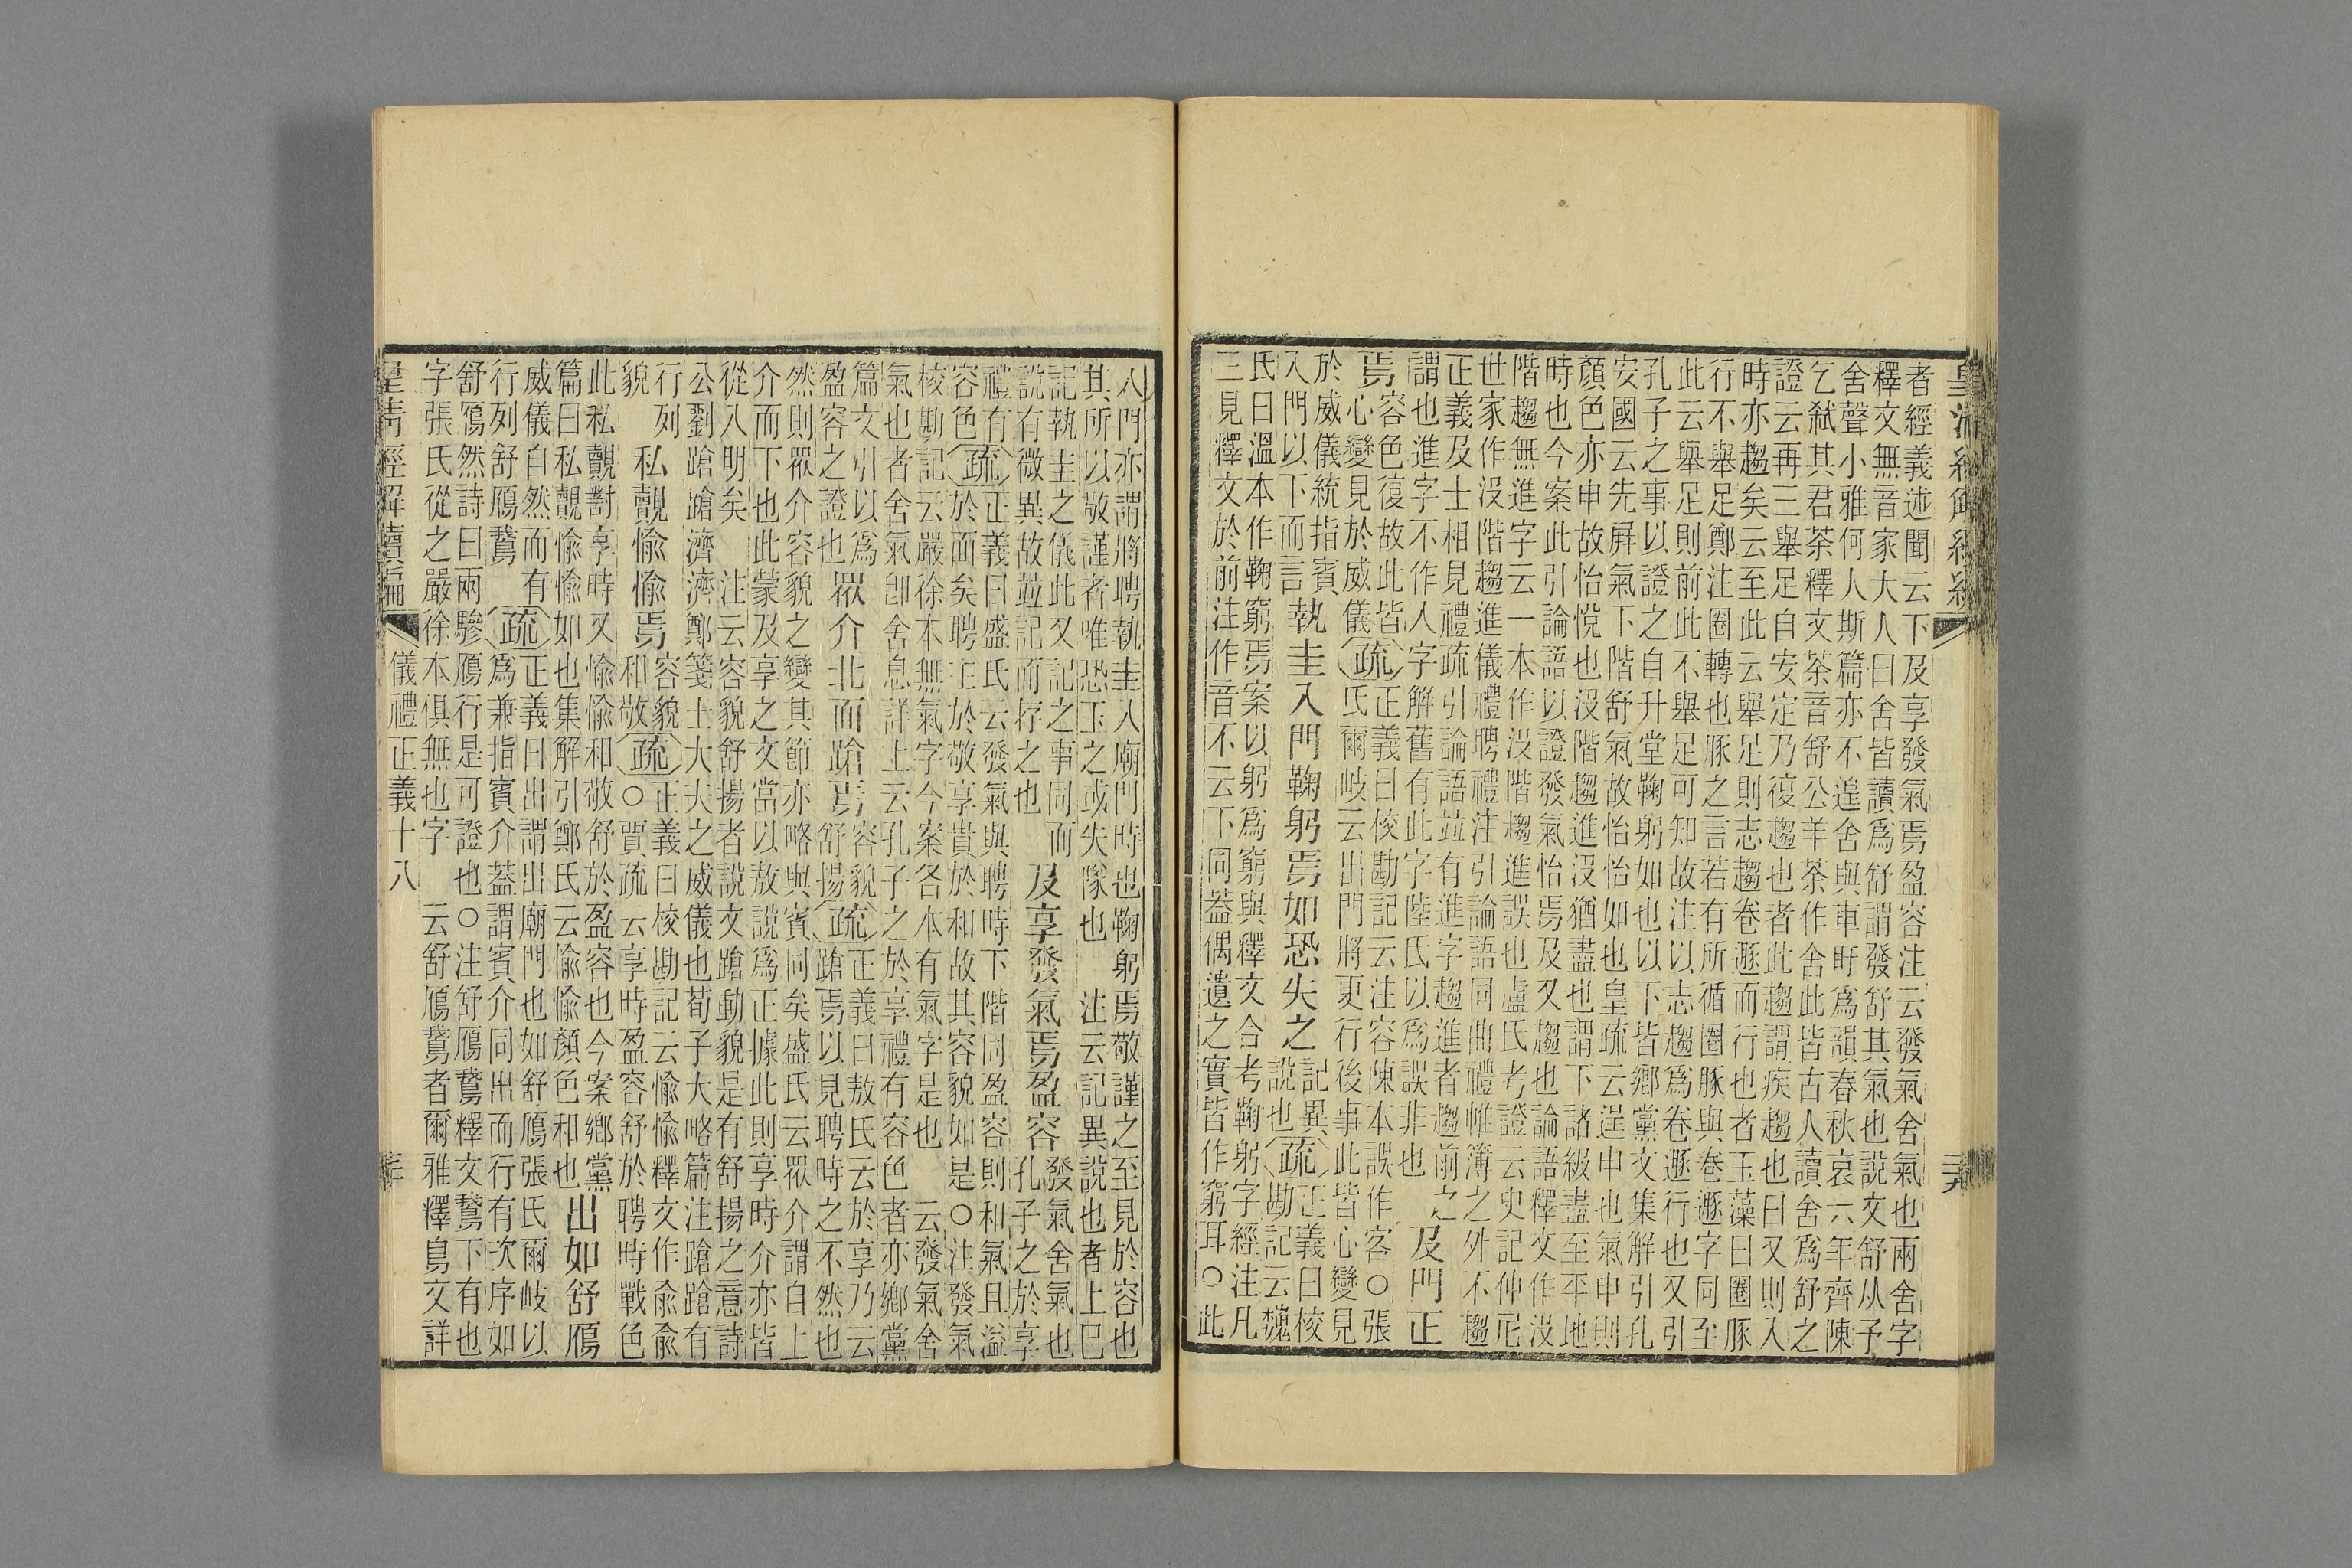 者經義述聞云下及享發氣焉盈容注云發氣舍氣也兩舍字
釋文無音家大人曰舍皆讀為舒謂發舒其氣也說文舒从予
舍聲小雅何人斯篇亦不遑舍與車盱為韻春秋哀六年齊陳
乞弒其君荼釋文荼音舒公羊荼作舍此皆古人讀舍為舒之
證云再三舉足自安定乃復趨也者此趨謂疾趨也曰又則入
時亦趨矣云至此云舉足則志趨卷遯而行也者玉藻曰圈豚
行不舉足鄭注圈轉也豚之言若有所循圈豚與卷遯字同至
此云舉足則前此不舉足可知故注以志趨為卷遯行也又引
孔子之事以證之自升堂鞠躬如也以下皆鄉黨文集解引孔
安國云先屏氣下階舒氣故怡怡如也皇疏云逞申也氣申則
顏色亦申故怡悅也沒階趨進沒猶盡也謂下諸級盡至平地
時也今案此引論語以證發氣怡焉及又趨也論語釋文作沒
階趨無進字云一本作沒階趨進誤也盧氏考證云史記仲尼
世家作沒階趨進儀禮聘禮注引論語同曲禮帷薄之外不趨
正義及士相見禮疏引論語竝有進字趨進者趨前之
謂也進字不作入字解舊有此字陸氏以為誤非也
及門正
焉
容色復故此皆
心變見於威儀
疏
正義曰校勘記云注容陳本誤作客○張
氏爾岐云出門將更行後事此皆心變見
於威儀統指賓
入門以下而言
執圭入門鞠躬焉如恐失之
記異
說也
疏
正義曰校
勘記云魏
氏曰溫本作鞠窮焉案以躬為窮與釋文合考鞠躬字經注凡
三見釋文於前注作音不云下同蓋偶遺之實皆作窮耳○此
入門亦謂將聘執圭入廟門時也鞠躬焉敬謹之至見於容也
其所以敬謹者唯恐玉之或失隊也 注云記異說也者上已
記執圭之儀此又記之事同而
說有微異故竝記而存之也
及享發氣焉盈容
發氣舍氣也
孔子之於享
禮有
容色
疏
正義曰盛氏云發氣與聘時下階同盈容則和氣且溢
於面矣聘主於敬享貴於和故其容貌如是○注發氣
校勘記云嚴徐本無氣字今案各本有氣字是也 云發氣舍
氣也者舍氣卽舍息詳上云孔子之於享禮有容色者亦鄉黨
篇文引以為
盈容之證也
眾介北面蹌焉
容貌
舒揚
疏
正義曰敖氏云於享乃云
蹌焉以見聘時之不然也
然則眾介容貌之變其節亦略與賓同矣盛氏云眾介謂自上
介而下也此蒙及享之文當以敖說為正據此則享時介亦皆
從入明矣 注云容貌舒揚者說文蹌動貌是有舒揚之意詩
公劉蹌蹌濟濟鄭箋士大夫之威儀也荀子大略篇注蹌蹌有
行列
貌
私覿愉愉焉
容貌
和敬
疏
正義曰校勘記云愉愉釋文作俞俞
○賈疏云享時盈容舒於聘時戰色
此私覿對享時又愉愉和敬舒於盈容也今案鄉黨
篇曰私覿愉愉如也集解引鄭氏云愉愉顏色和也
出如舒鴈
威儀自然而有
行列舒鴈鵞
疏
正義曰出謂出廟門也如舒鴈張氏爾岐以
為兼指賓介蓋謂賓介同出而行有次序如
舒鴈然詩曰兩驂鴈行是可證也○注舒鴈鵞釋文鵞下有也
字張氏從之嚴徐本俱無也字 云舒鴈鵞者爾雅釋鳥文詳
皇清經解續編 儀禮正義十八